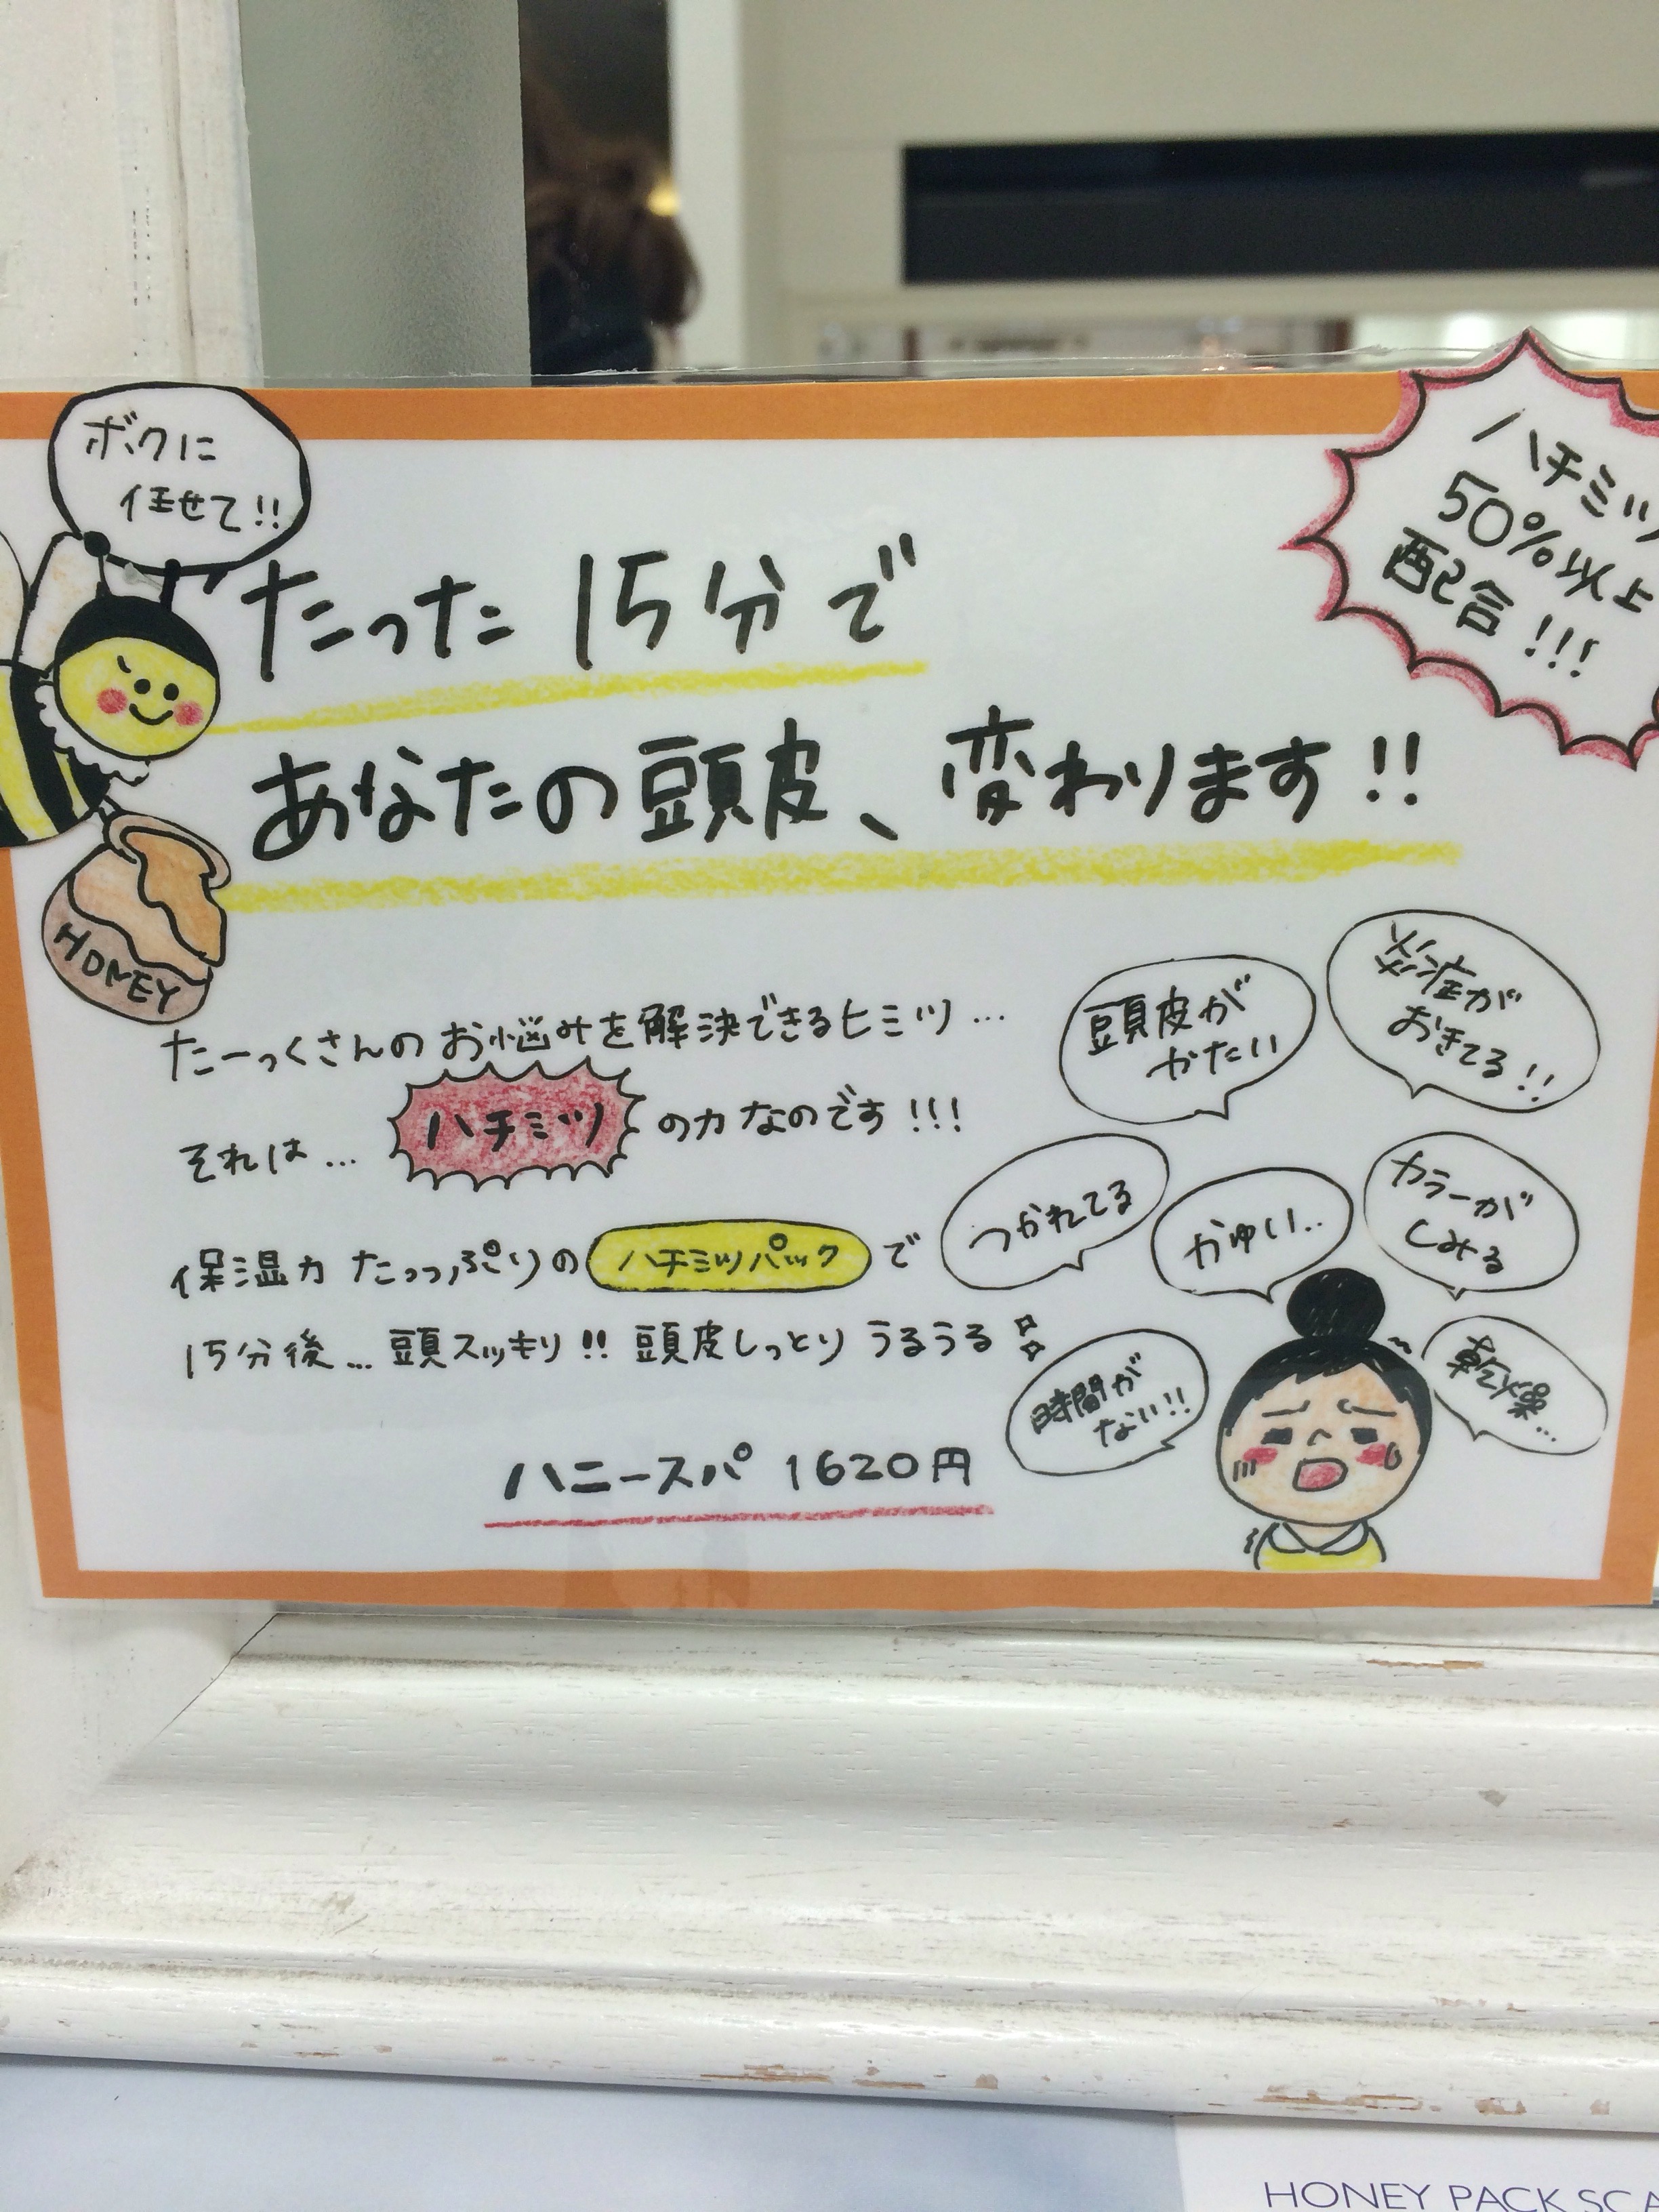 ボクに
任せて!!
ハチミツ
50%以上
配合!!!
たった15分で
あなたの頭皮、変わります!!
HONEY
たーっくさんのお悩みを解決できるヒミツ…
それは…ハチミツの力なのです!!!
保湿力たっっぷりのハチミツパックで
15分後…頭スッキリ!!頭皮しっとりうるうる
ハニースパ 1620円
頭皮が
かたい
炎症が
おきてる!!
つかれてる
かゆい..
カラーが
しみる
時間が
ない!!
乾燥…
HONEY PACK